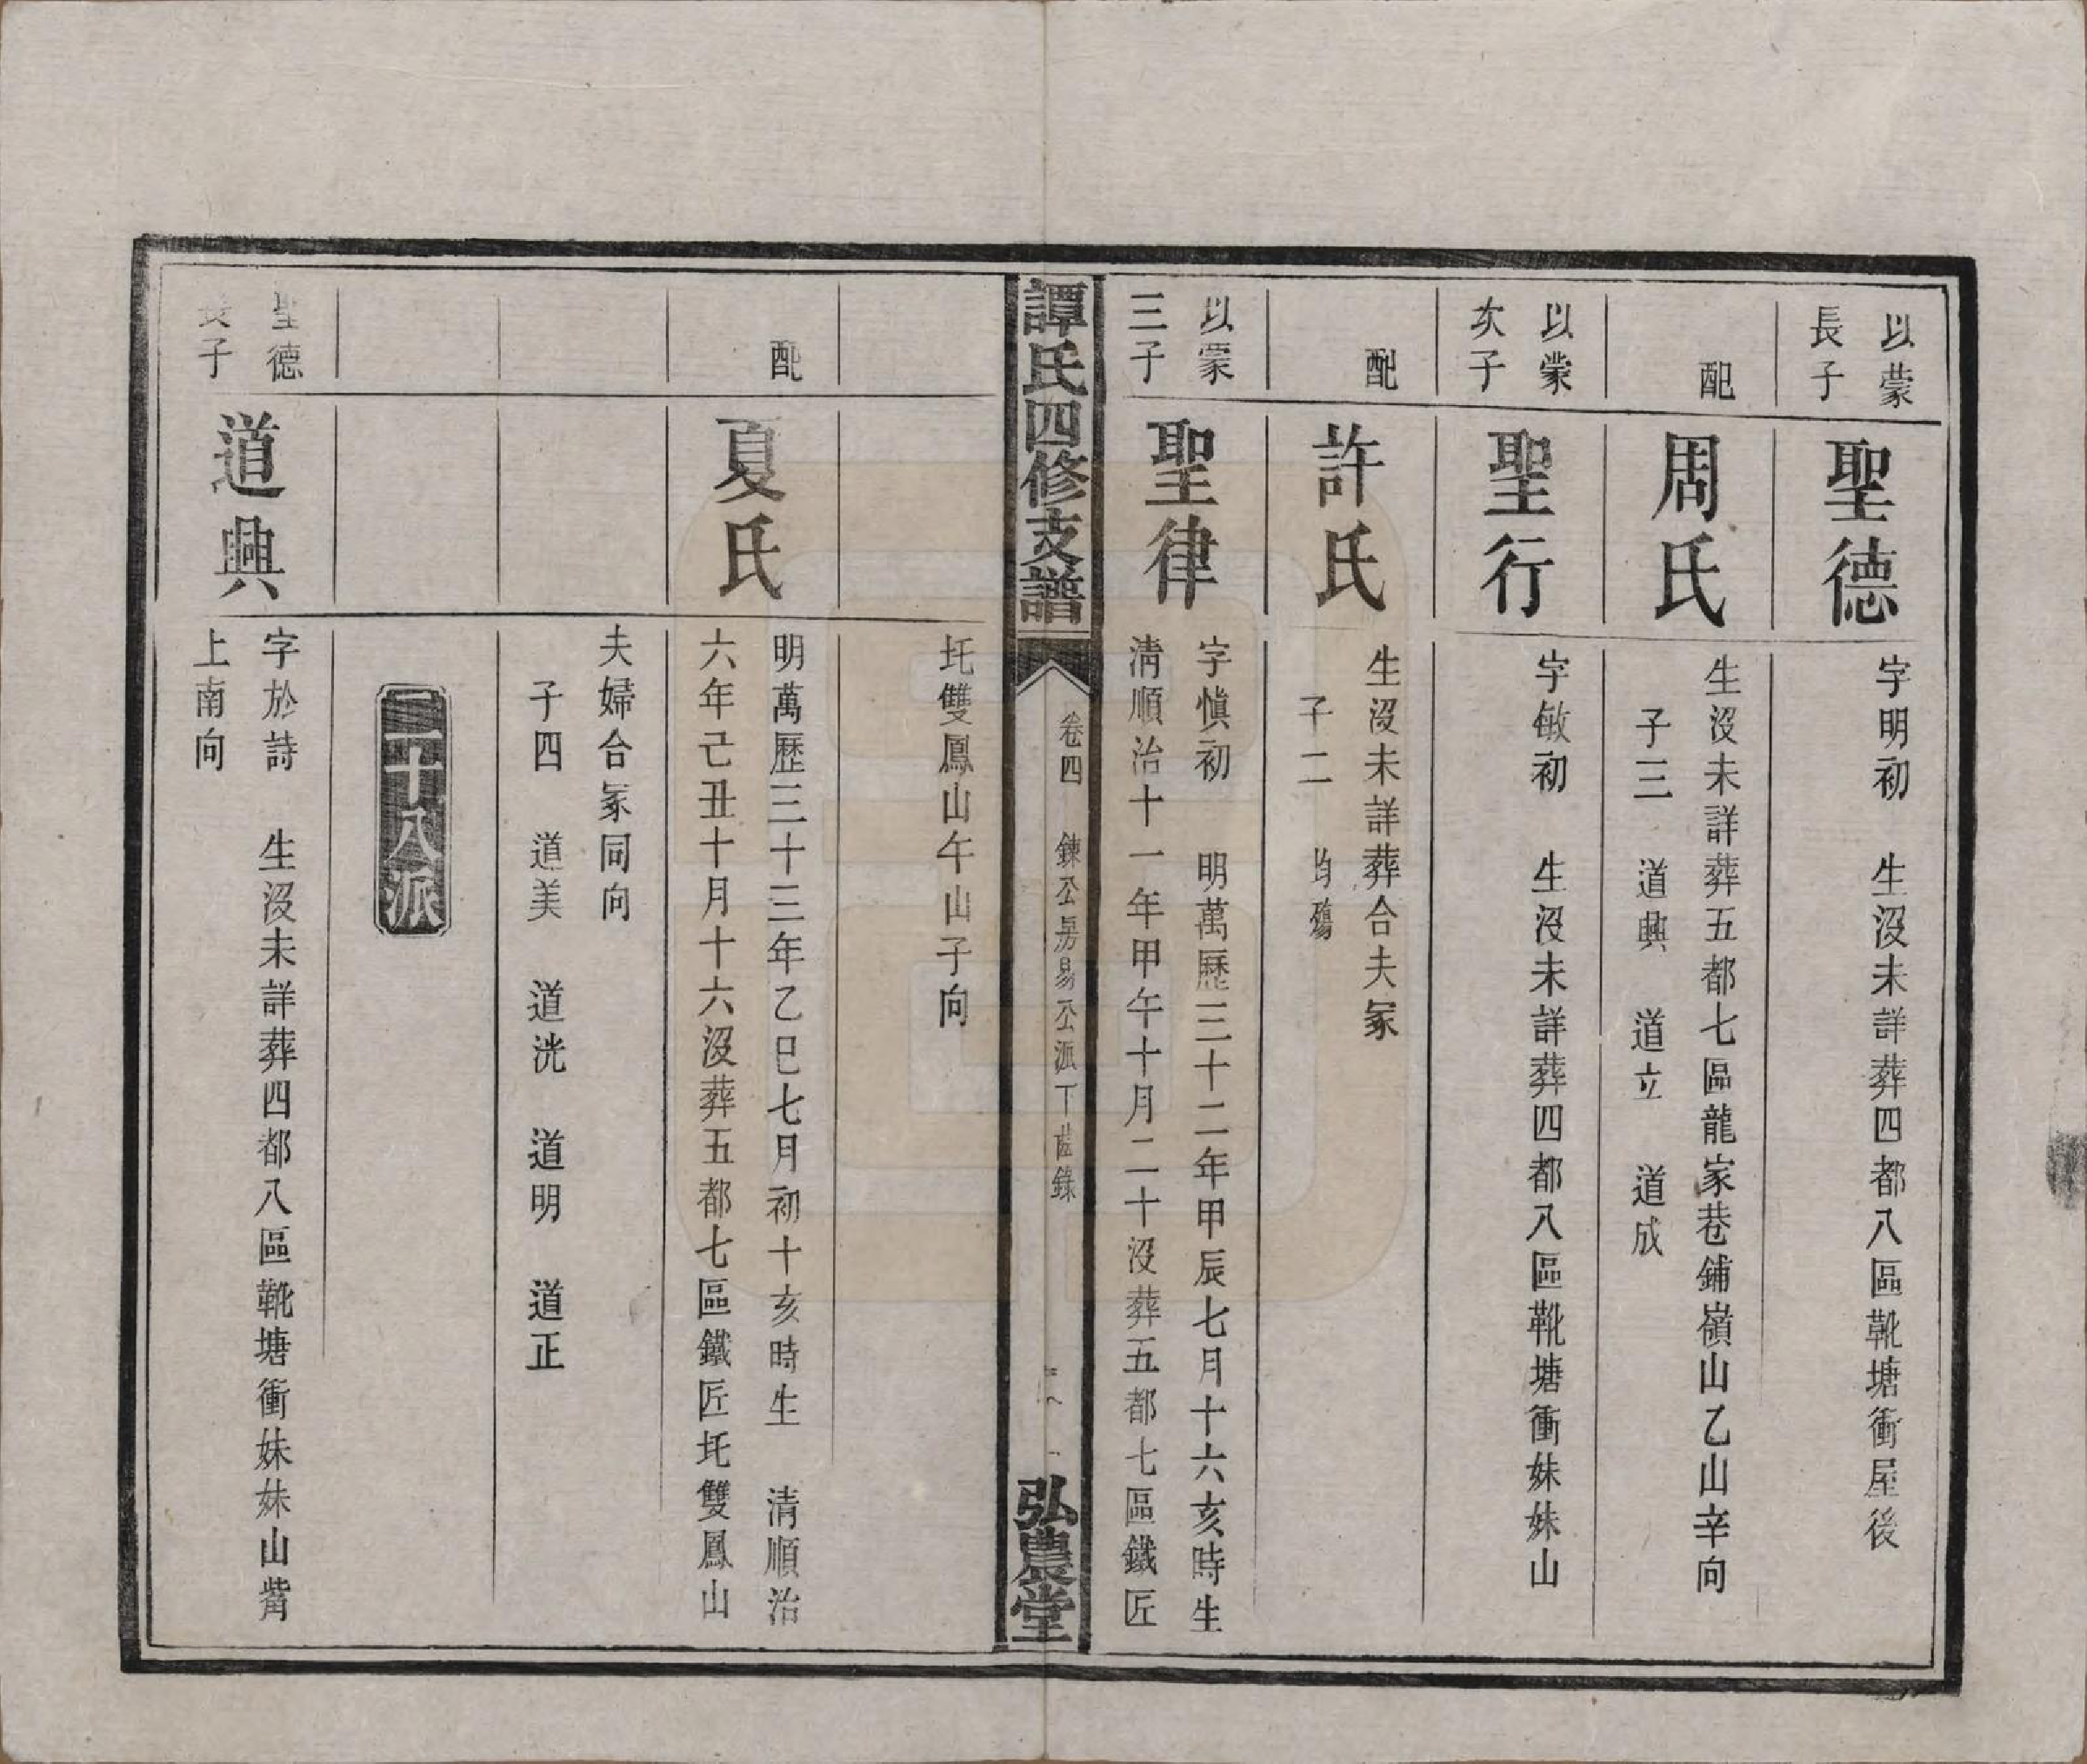 以蒙
長子
聖德
字明初　生沒未詳葬四都八區靴塘衝屋後
配
周氏
生沒未詳葬五都七區龍家巷鋪嶺山乙山辛向
子三　道興　道立　道成
以蒙
次子
聖行
字敏初　生沒未詳葬四都八區靴塘衝妹妹山
配
許氏
生沒未詳葬合夫冢
子二　均殤
以蒙
三子
聖律
字慎初　明萬歷三十二年甲辰七月十六亥時生
清順治十一年甲午十月二十沒葬五都七區鐵匠
譚氏四修支譜
卷四　鍊公房易公派下齒錄
弘農堂
圫雙鳳山午山子向
配
夏氏
明萬歷三十三年乙巳七月初十亥時生　清順治
六年己丑十月十六沒葬五都七區鐵匠圫雙鳳山
夫婦合冢同向
子四　道美　道洸　道明　道正
二十八派
聖德
長子
道興
字於詩　生沒未詳葬四都八區靴塘衝妹妹山觜
上南向